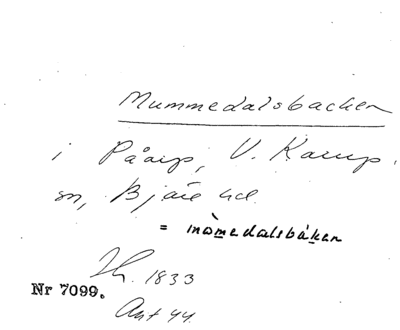 Mummedalsbacken
i Påarp, V. Karup.
sn, Bjäre hd.
= mòmedalsbáken
1833
Nr 7099.
Ant 44.